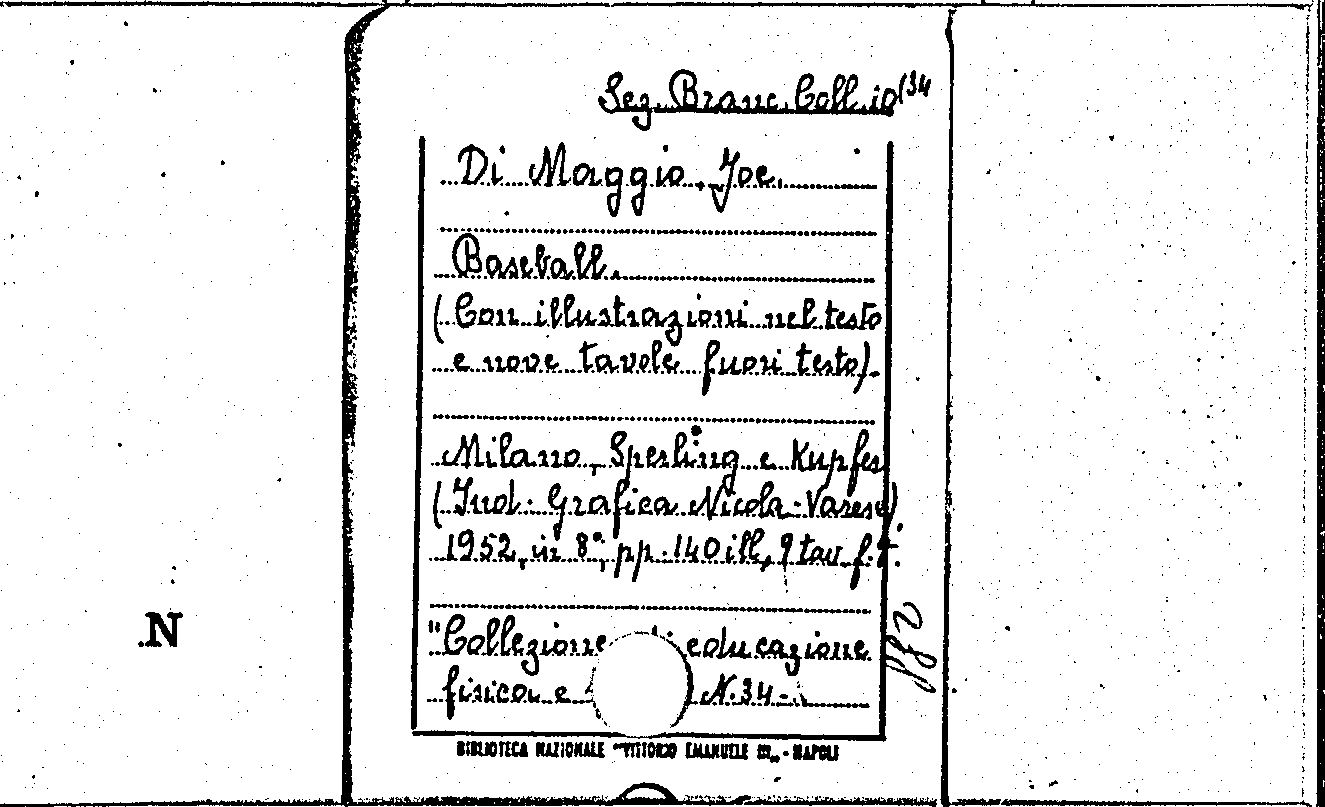 Sez. Branc. Coll. 10(34
Di Maggio, Joe.
Baseball.
(Con illustrazioni nel testo
e nove tavole fuori testo).
Milano, Sperling e Kupfer
(Ind. Grafica Nicola-Varese)
1952, in 8°, pp. 140 ill., 9 tav. f. t.
"Collezione di educazione
fisica e N. 34 -
BIBLIOTECA NAZIONALE "VITTORIO EMANUELE III" - NAPOLI
N